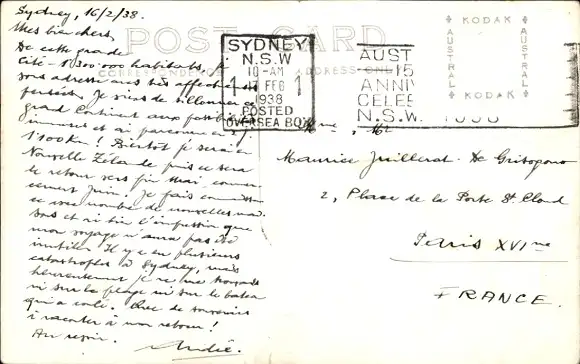 Sydney, 16/2/38.
Mes bien chers,
De cette grande
Cité – 1.300.000 habitants, je
vous adresse mes très affectueuses
pensées. Je viens de sillonner ce
grand Continent aux possibilités
immenses et ai parcouru
Bientôt je serai en
Nouvelle Zélande puis ce sera
le retour vers fin Mai, commen-
cement Juin. Je fais
ce nombre de nouvelles
et ai bien l'impression que
mon voyage n'aura pas été
inutile. Il y eu plusieurs
catastrophes à Sydney, mais
heureusement je ne me trouvais
ni sur la plage ni sur le bateau
qui a coulé. Que de souvenirs
à raconter à mon retour!
Au revoir.
André.
POST CARD
CORRESPONDENCE
ADDRESS ONLY
SYDNEY
N.S.W
10-AM
1 17 FEB 1
1938
POSTED
OVERSEA BOX
AUST
15
ANNIV
CELEB
N.S.W.
1938
KODAK
AUSTRAL
AUSTRAL
KODAK
Maurice Juillerat - De
2, Place de la Porte St Cloud
Paris XVIme
FRANCE.